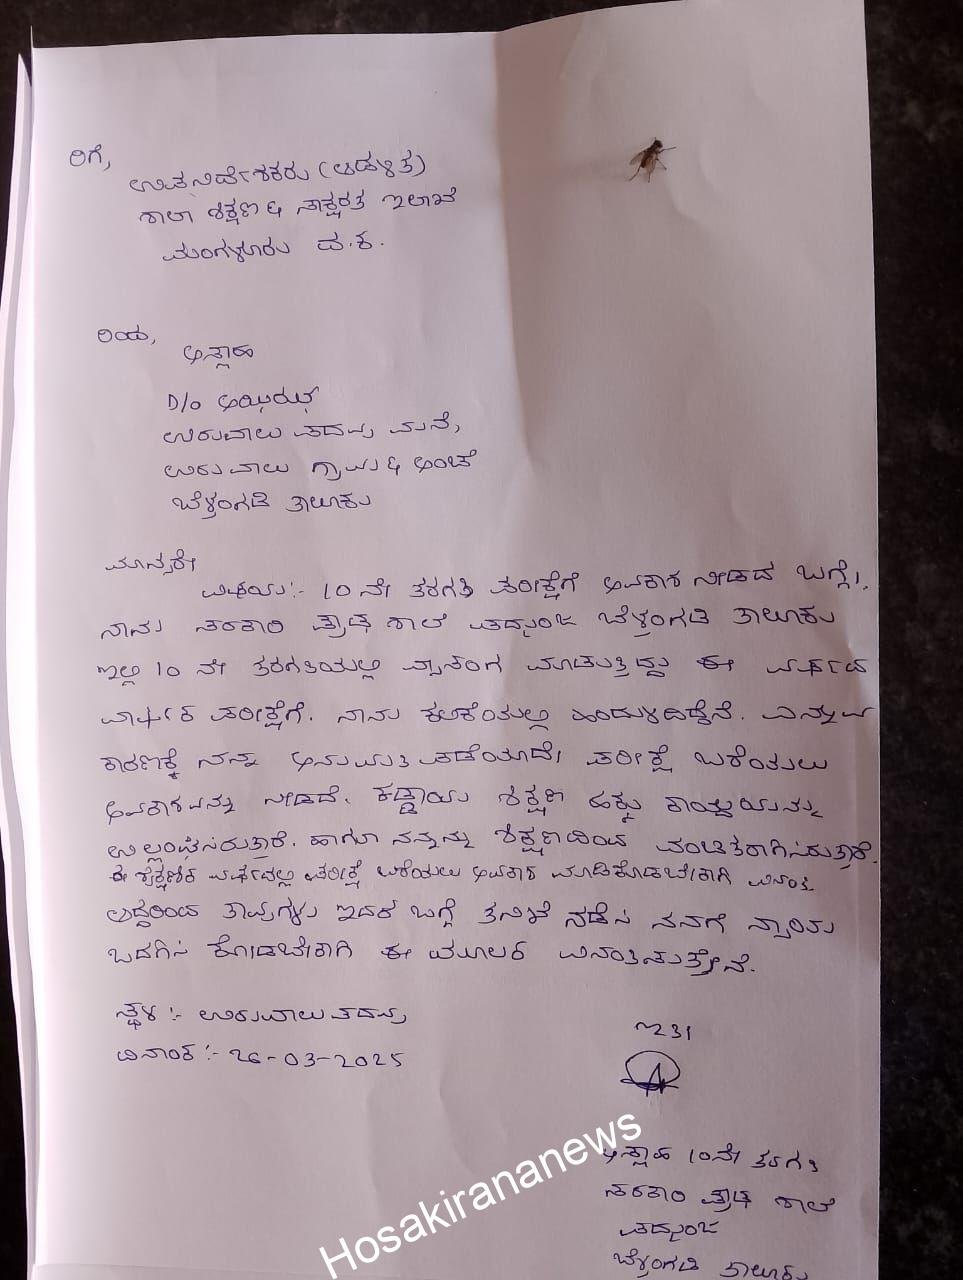 ರಿಗೆ,
ಉಪನಿರ್ದೇಶಕರು (ಆಡಳಿತ)
ಶಾಲಾ ಶಿಕ್ಷಣ & ಸಾಕ್ಷರತ ಇಲಾಖೆ
ಮಂಗಳೂರು ದ.ಕ.
ರಿಂದ,
D/o
ಉರುವಾಲು ಪದವು ಮನೆ,
ಉರುವಾಲು ಗ್ರಾಮ & ಅಂಚೆ
ಬೆಳ್ತಂಗಡಿ ತಾಲೂಕು
ಮಾನ್ಯರೇ
ವಿಷಯ:- 10 ನೇ ತರಗತಿ ಪರೀಕ್ಷೆಗೆ ಅವಕಾಶ ನೀಡದ ಬಗ್ಗೆ.
ನಾನು ಸರಕಾರಿ ಪ್ರೌಢ ಶಾಲೆ ಪದ್ಮುಂಜ ಬೆಳ್ತಂಗಡಿ ತಾಲೂಕು
ಇಲ್ಲಿ 10 ನೇ ತರಗತಿಯಲ್ಲಿ ವ್ಯಾಸಂಗ ಮಾಡುತ್ತಿದ್ದು ಈ ವರ್ಷದ
ವಾರ್ಷಿಕ ಪರೀಕ್ಷೆಗೆ. ನಾನು ಕಲಿಕೆಯಲ್ಲಿ ಹಿಂದುಳಿದಿದ್ದೇನೆ. ಎನ್ನುವ
ಕಾರಣಕ್ಕೆ ನನ್ನ ಅನುಮತಿ ಪಡೆಯದೇ ಪರೀಕ್ಷೆ ಬರೆಯಲು
ಅವಕಾಶವನ್ನು ನೀಡದೆ. ಕಡ್ಡಾಯ ಶಿಕ್ಷಣ ಹಕ್ಕು ಕಾಯ್ದೆಯನ್ನು
ಉಲ್ಲಂಘಿಸಿರುತ್ತಾರೆ. ಹಾಗೂ ನನ್ನನ್ನು ಶಿಕ್ಷಣದಿಂದ ವಂಚಿತರಾಗಿಸಿರುತ್ತಾರೆ.
ಈ ಶೈಕ್ಷಣಿಕ ವರ್ಷದಲ್ಲಿ ಪರೀಕ್ಷೆ ಬರೆಯಲು ಅವಕಾಶ ಮಾಡಿಕೊಡಬೇಕಾಗಿ ವಿನಂತಿ
ಆದ್ದರಿಂದ ತಾವುಗಳು ಇದರ ಬಗ್ಗೆ ತನಿಖೆ ನಡೆಸಿ ನನಗೆ ನ್ಯಾಯ
ಒದಗಿಸಿ ಕೋಡಬೇಕಾಗಿ ಈ ಮೂಲಕ ವಿನಂತಿಸುತ್ತೇನೆ.
ಸ್ಥಳ :- ಉರುವಾಲು ಪದವು
ದಿನಾಂಕ :- 26-03-2025
ಇತಿ
10ನೇ ತರಗತಿ
ಸರಕಾರಿ ಪ್ರೌಢ ಶಾಲೆ
ಪದ್ಮುಂಜ
ಬೆಳ್ತಂಗಡಿ ತಾಲೂಕು
Hosakirananews